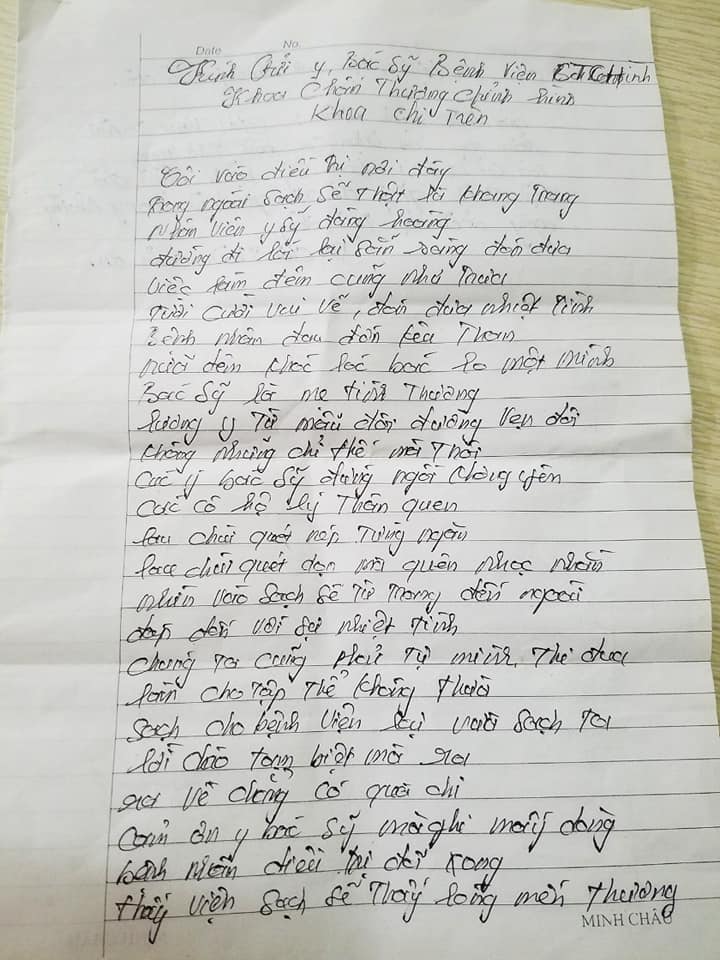 Date No.
Kính Gửi y, Bác Sỹ Bệnh Viện
Khoa Chấn Thương Chỉnh hình
Khoa Chi Trên
Tôi vào điều Trị nơi đây
Trong ngoài sạch sẽ Thật là khang Trang
Nhân Viên y sỹ đàng hoàng
đường đi lối lại sẵn sàng đón đưa
Việc làm đêm cũng như Trưa
Tươi cười vui vẽ, đón đưa nhiệt Tình
Bệnh nhân đau đớn kêu Than
nữa đêm bác lo một mình
Bác Sỹ là mẹ tình Thương
Lương y Từ mẫu đôi đường vẹn đôi
không những chỉ thế mà Thôi
Các y bác sỹ đứng ngồi chẳng yên
Các cô hộ lý Thân quen
lau chùi quét nếp Từng ngàn
lau chùi quét dọn mà quên nhọc nhằn
nhìn vào sạch sẽ Từ Trong đến ngoài
đón với sự nhiệt tình
Chúng Ta cũng phải Tự mình Thi đua
làm cho Tập Thể không Thua
Sạch cho bệnh viện lại vừa sạch Ta
lời chào tạm biệt mà ra
ra về chẳng có quà chi
Cảm ơn y bác sỹ mà ghi mấy dòng
bệnh nhân điều trị đã xong
thấy viện sạch sẽ Thấy lòng mến thương
MINH CHÂU